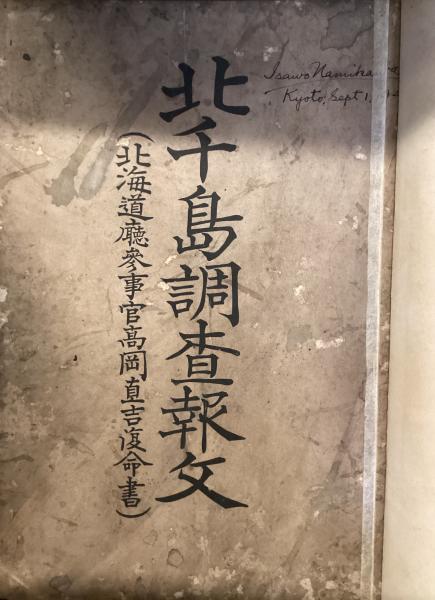 北千島調査報文
(北海道廳參事官高岡直吉復命書)
Isawo Namikawa
Kyoto, Sept 1,